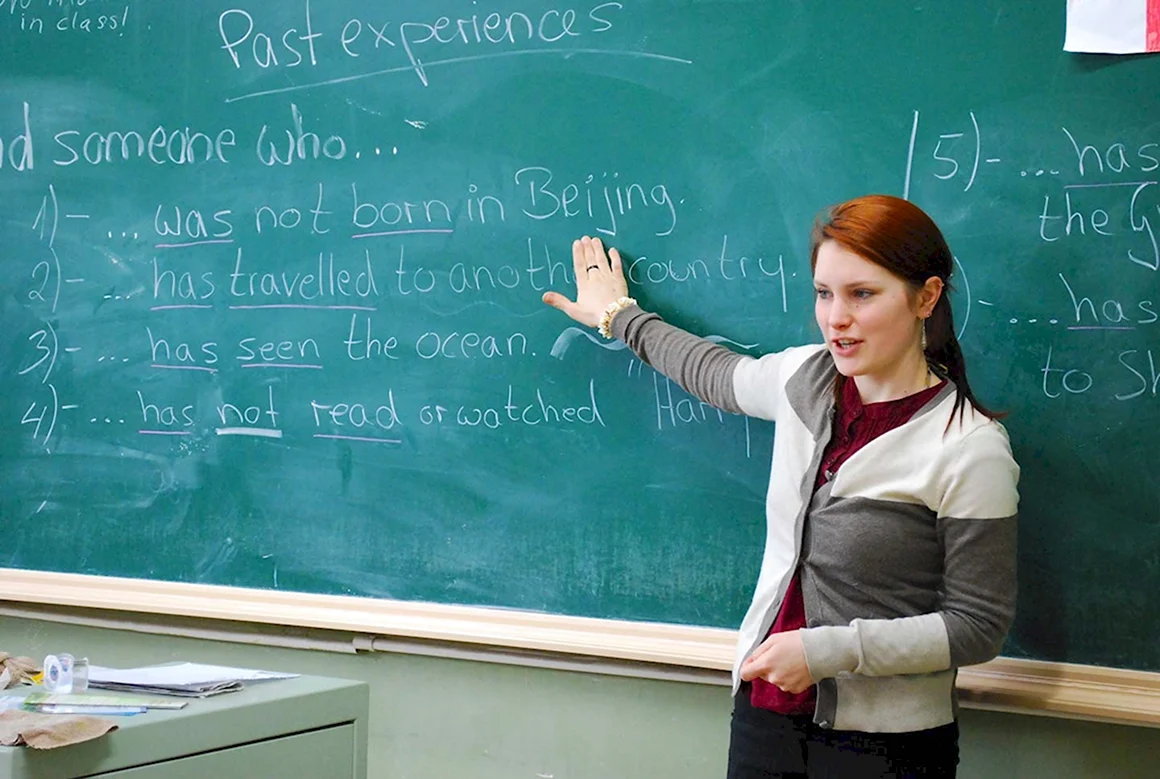 in class!
Past experiences
someone who...
1)- ... was not born in Beijing.
2)- ... has travelled to country.
3)- ... has seen the ocean.
4)- ... has not read or watched "Harry
5)- ... has
the
)- ... has
to Sh